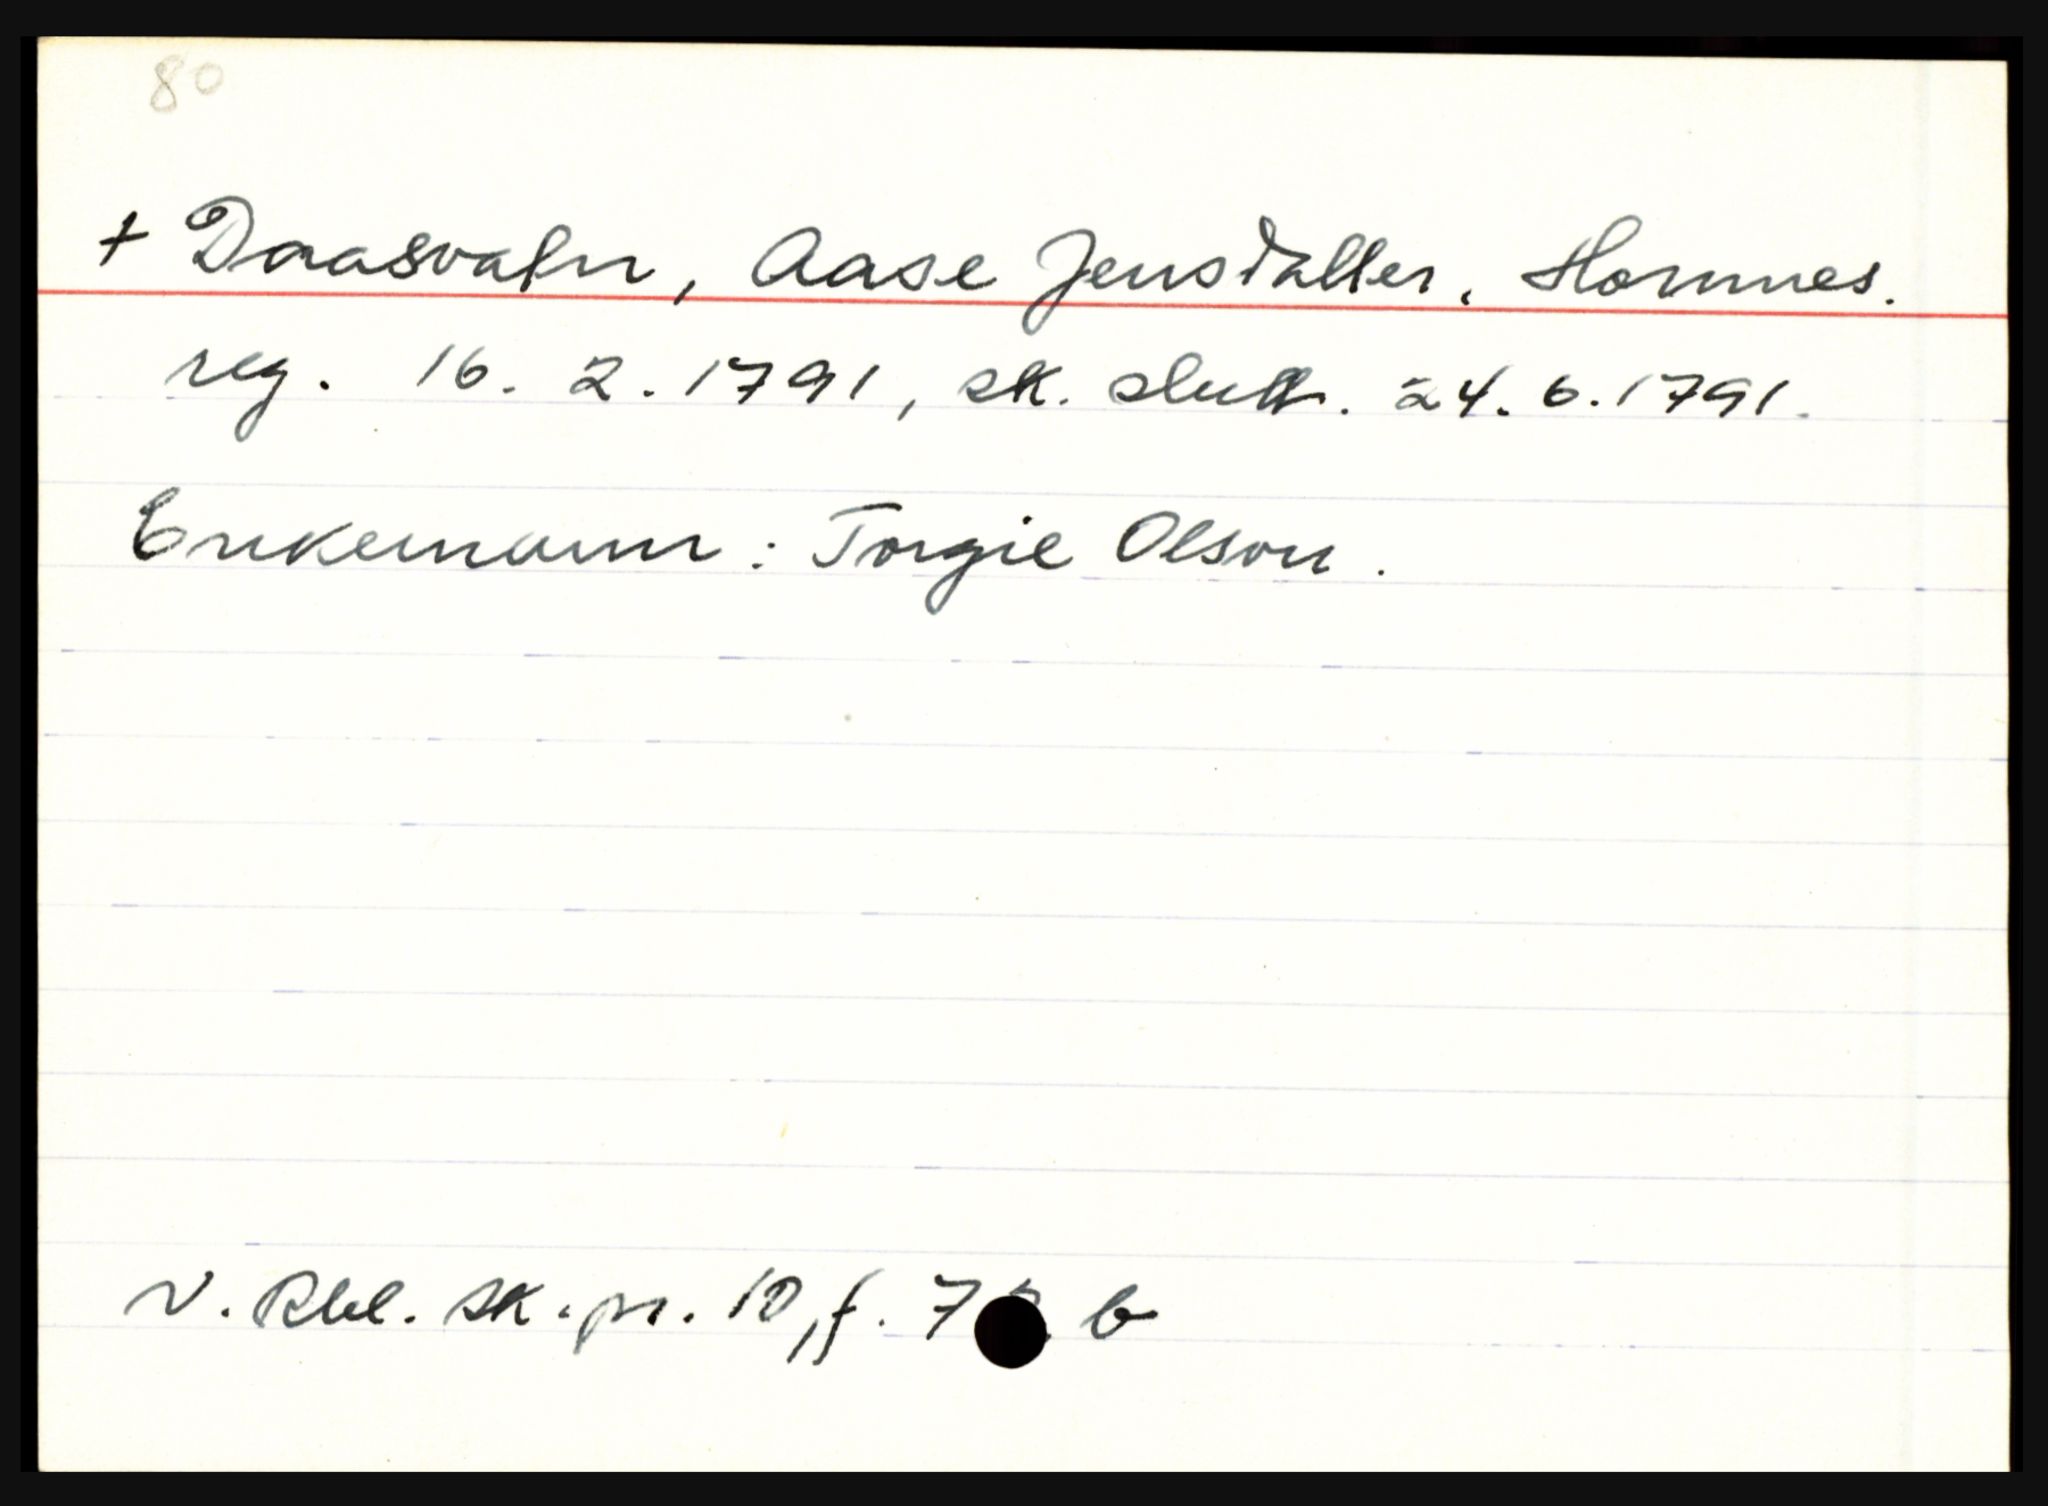 80
+ Daasvatn, Aase Jensdatter, Hornnes.
reg. 16. 2. 1791, sk. slutt. 24. 6. 1791.
Enkemann: Torgie Olson.
V. Rbl. sk. pr. 10, f. 7 b